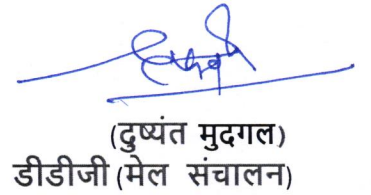 (दुष्यंत मुदगल)
डीडीजी (मेल संचालन)